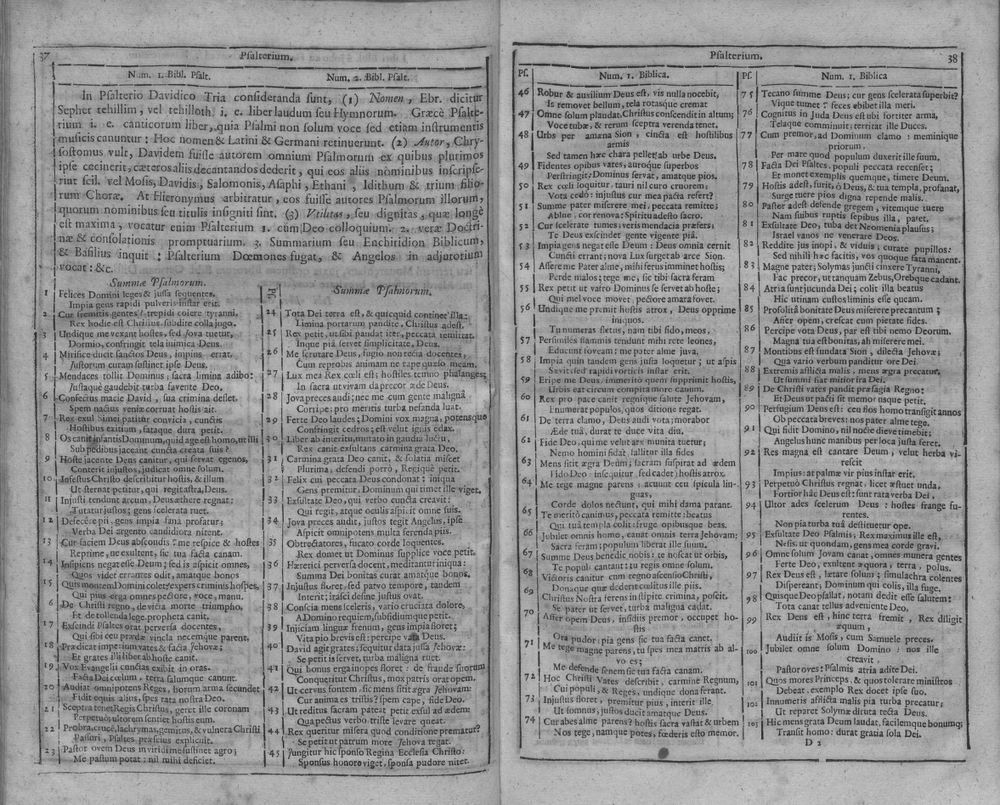 37
Psalterium.
Num. 1. Bibl. Psalt.
Num. 2. Bibl. Psalt.
In Psalterio Davidico Tria consideranda sunt, (1) Nomen, Ebr. dicitur
Sepher tehillim, vel tehilloth i. e. liber laudum seu Hymnorum. Græcè Psalte-
rium i. e. canticorum liber, quia Psalmi non solum voce sed etiam instrumentis
musicis canuntur; Hoc nomen & Latini & Germani retinuerunt. (2) Autor, Chry-
sostomus vult, Davidem fuisse autorem omnium Psalmorum ex quibus plurimos
ipse cecinerit, cæteros aliis decantandos dederit, qui eos aliis nominibus inscripse-
rint scil. vel Mosis, Davidis, Salomonis, Asaphi, Ethani, Idithum & trium filio-
rum Choræ. At Hieronymus arbitratur, eos fuisse autores Psalmorum illorum,
quorum nominibus seu titulis insigniti sint. (3) Utilitas, seu dignitas, quæ longè
est maxima, vocatur enim Psalterium 1. cum Deo colloquium. 2. veræ Doctri-
næ & consolationis promptuarium. 3. Summarium seu Enchiridion Biblicum,
& Basilius inquit: Psalterium Dœmones fugat, & Angelos in adjutorium
vocat: &c.
Summæ Psalmorum.
1 Felices Domini leges & jussa sequentes,
Impia gens rapidi pulveris instar erit.
2 Cur fremitis gentes? trepidi coiere tyranni,
Rex hodie est Christus, subdite colla jugo.
3 Undique me vexant hostes, sed, sova tuetur,
Dormio, confringit tela inimica Deus.
4 Mirifice ducit sanctos Deus, impius errat.
Justorum curam sustinet ipse Deus.
5 Mendaces tollit Dominus; sacra limina adibo:
Justaque gaudebit turba favente Deo,
6 Confectus macie David, sua crimina deflet.
Spem nactus veniæ corruat hostis ait.
7 Rex exul Nimei patitur convicia, cunctis
Hostibus exitium, fataque dura petit.
8 Os canit infantis Dominum, quid age est homo, ut illi
Sub pedibus jaceant cuncta creata suis?
9 Hoste jacente Deus canitur, qui servat egenos,
Conterit injustos, judicat omne solum.
10 Infestus Christo describitur hostis, & illum
Ut sternat petitur, qui regit astra, Deus.
11 Injusti tendunt arcum, Deus æthere regnat:
Tutatur justos; gens scelerata ruet.
12 Defecere pii, gens impia fana profatur;
Verba Dei argento candidiora nitent.
13 Cur faciem Deus abscondis? me respice & hostes
Reprime, ne exultent, sic tua facta canam.
14 Insipiens negat esse Deum; sed is aspicit omnes,
Quos videt errantes odit, amatque bonos
15 Quis montem Domini colet? expers criminis hospes,
Qui pius erga omnes pectore, voce, manu.
16 De Christi regno, devicta morte triumpho,
Et de tollenda lege, propheta canit.
17 Exscindi Psaltes orat perversa docentes,
Qui sibi ceu prædæ vincla necemque parent.
18 Prædicat imperium vates & facta Jehovæ;
Et grates illi libet ab hoste canit.
19 Vox Evangelii cunctas exibit in oras.
Facta Dei cœlum, terra salumque canunt.
20 Audiat omnipotens Reges, horum arma secundet
Fidit equis alius, spes rata nostra Deo.
21 Sceptra tenet Regis Christus, geret ille coronam
Perpetuò ultorem sentiet hostis eum.
22 Probra, crucē, lachrymas, gemitus, & vulnera Christi
Pastori, Psaltes præscius explicuit.
23 Pastor ovem Deus in viridi me sustinet agro;
Me pastum potat: nil mihi deficiet.
Psal.
Summæ Psalmorum.
24 Tota Dei terra est, & quicquid continet illa:
Limina portarum pandite, Christus adest.
25 Rex petit, ut sibi pandat iter, peccata remittat.
Inque piâ servet simplicitate, Deus.
26 Me scrutare Deus, fugio non recta docentes,
Cum reprobis animam ne rape quæso meam.
27 Lux mea Rex cœli est: hostiles temno phalanges;
In sacra ut vivam da precor æde Deus.
28 Jova preces audi; nec me cum gente malignâ
Corripe: pro meritis turba nefanda luat.
29 Ferte Deo laudes; Domini vox magna, potensque
Constringit cedros; est velut ignis edax.
30 Liber ab interitu, mutato in gaudia luctu,
Rex canit exsultans carmina grata Deo.
31 Carmina grata Deo canit, & solatia miscet
Plurima, defendi porrò, Regique petit.
32 Felix cui peccata Deus condonat: iniqua
Gens premitur, Dominum qui timet ille viget.
33 Exsultate Deo, qui verbo cuncta creavit:
Qui regit, atque oculis aspicit omne suis.
34 Jova preces audit, justos tegit Angelus, ipse
Aspicit omnipotens multa ferenda piis.
35 Obtrectatores, fucato corde loquentes.
Rex domet ut Dominus supplice voce petit.
36 Hæretici perversa docent, meditantur iniqua:
Summa Dei bonitas curat amatque bonos.
37 Injustus floret, sed parvo tempore, tandem
Interit; itasci desine justus ovat.
38 Conscia mens sceleris, vario cruciata dolore,
A Domino requiem, subsidiumque petit.
39 Injiciam linguæ frenum, gens impia floret;
Vita pio brevis est: percipe vota Deus.
40 David agit grates; sequitur data jussa Jehovæ:
Se petit is servet, turba maligna ruet.
41 Qui bonus erga inopes floret: de fraude suorum
Conqueritur Christus, mox patris orat opem.
42 Ut cervus fontem, sic mens sitit ægra Jehovam:
Cur anima es tristis? spem cape, fide Deo.
43 Ut reditus sacram pateat petit exsul ad ædem:
Qua pectus verbo triste levare queat.
44 Rex queritur misera quod conditione prematur?
Se petit ut patrum more Jehova regat.
45 Jungitur hic sponso Regina Ecclesia Christo:
Sponsus honore viget, sponsa pudore nitet.
Psalterium.
38
Ps.
Num. 1. Biblica.
46 Robur & auxilium Deus est, vis nulla nocebit,
Is removet bellum, tela rotasque cremat
47 Omne solum plaudat, Christus conscendit in altum;
Voce tubæ, & rerum sceptra verenda tenet.
48 Urbs per amœna Sion, cincta est hostilibus
armis
Sed tamen hæc charâ pellet ab urbe Deus.
49 Fidentes opibus vates, auroque superbos
Perstringit; Dominus servat, amatque pios.
50 Rex cœli loquitur, tauri nil curo cruorem;
Vota cedò: injustus cur mea pacta refert?
51 Summe pater miserere mei, peccata remitte;
Ablue, cor renova: Spiritu adesto sacro.
52 Cur scelerate tumes; veris mendacia præfers;
Te Deus exscindet gente vigente piâ.
53 Impia gens negat esse Deum: Deus omnia cernit
Cuncti errant; nova Lux surget ab arce Sion.
54 Assere me Pater alme, mihi ferus imminet hostis;
Perde malos; tege me, sic tibi sacra feram
55 Rex petit ut vatem Dominus se servet ab hoste;
Qui mel voce movet, pectore amara fovet.
56 Undique me premit hostis atrox, Deus opprime
iniquos.
Tu numeras fletus, nam tibi fido, meos,
57 Persimiles flammis tendunt mihi rete leones,
Educent foveam: me pater alme juva.
58 Impia quin tandem gens justa loquetur; ut aspis
Sævit: sed rapidi vorticis instar erit.
59 Eripe me Deus, immeritò quem opprimit hostis,
Urbis eat circum compita more canum.
60 Rex pro pace canit regnique salute Jehovam,
Enumerat populos, quos ditione regat.
61 De terra clamo, Deus audi vota; morabor
Æde tuâ, durat te duce vita diu.
62 Fide Deo, qui me velut arx munita tuetur;
Nemo homini fidat, fallitur illa fides
63 Mens sitit ægra Deum; sacram suspirat ad ædem
Fido Deo insequitur, sed cadet, hostis atrox.
64 Me tege magne parens: acuunt ceu spicula lin-
guas,
Corde dolos nectunt, qui mihi damna parant.
65 Te meritò canimus, peccata remitte: beatus
Qui tua templa colit: fruge opibusque beas.
66 Jubilet omnis homo, canat omnis terra Jehovam;
Sacra feram; populum liberat ille suum.
67 Summe Deus benedic nobis: te noscat ut orbis,
Te populi cantant: tu regis omne solum.
68 Victoris canitur cum regno ascensio Christi,
Donaque quæ dederat cultibus ille piis.
69 Christus Nostra ferens insipite crimina, poscit.
Se pater ut servet, turba maligna cadat.
70 Asser opem Deus, insidiis premior, occupet ho-
stis
Ora pudor: pia gens sic tua facta canet.
71 Me tege magne parens, tu spes mea matris ab al-
vo es;
Me defende senem sic tua facta canam.
72 Hoc Christi Vates describit, carmine Regnum,
Cui populi, & Reges, undique dona ferant.
73 Injustus floret, premitur pius, interit ille
Ut somnus, justos ducit amatque Deus.
74 Cur abes alme parens? hostis sacra vastat & urbem
Nos tege, namque potes, fœderis esto memor.
Ps.
Num. 1. Biblica
75 Tecano summe Deus; cur gens scelerata superbit?
Vique tumet? feces ebibet illa meri.
76 Cognitus in Juda Deus est ubi fortiter arma,
Telaque comminuit; territat ille Duces.
77 Cum premor, ad Dominum clamo: meminique
priorum,
Per mare quod populum duxerit ille suum.
78 Facta Dei Psaltes, populi peccata recenset;
Et monet exemplis quemque, timete Deum.
79 Hostis adest, furit, ô Deus, & tua templa, profanat,
Surge tuere pios digna repende malis.
80 Pastor adest defende gregem, vitemque tuere
Nam suibus ruptis sepibus illa, patet.
81 Exsultate Deo, tuba det Neomenia plausus;
Israel vanos ne venerare Deos.
82 Reddite jus inopi, & viduis; curate pupillos:
Sed nihili hæc facitis, vos quoque fata manent.
83 Magne pater; Solymas juncti cinxere Tyranni,
Fac precor, ut tanquam Zebus, Orebque cadant.
84 Atria sunt jucunda Dei; colit illa beatus
Hic utinam custos liminis esse queam.
85 Profolitâ bonitate Deus miserere precantum;
Asser opem, crescat cum pietate fides.
86 Percipe vota Deus, par est tibi nemo Deorum.
Magna tua est bonitas, ah miserere mei.
87 Montibus est fundata Sion, dilecta Jehovæ;
Qua vario verbum panditur ore Dei.
88 Extremis afflicta malis, mens ægra precatur,
Ut summi fiat mitior ira Dei.
89 De Christi vates pandit præsagia Regno:
Et Deus ut pacti sit memor usque petit.
90 Perfugium Deus est: ceu flos homo transigit annos
Ob peccata breves: nos pater alme tege.
91 Qui fidit Domino, nil nocte dieve timebit;
Angelus hunc manibus per loca justa feret.
92 Res magna est cantare Deum, velut herba vi-
rescit
Impius: at palmæ vir pius instar erit.
93 Perpetuò Christus regnat, licet æstuet unda,
Fortior hâc Deus est: sunt rata verba Dei,
94 Ultor ades scelerum Deus: hostes frange fu-
rentes.
Non pia turba tuâ destituetur ope.
95 Exsultate Deo Psalmis, Rex maximus ille est,
Ne sis, ut quondam, gens mea corde gravi.
96 Omne solum Jovam canat; omnes munera gentes
Ferte Deo, exultent æquora, terra, polus.
97 Rex Deus est, lætare solum; simulachra colentes
Dispereant, Dominum qui colis, illa fuge.
98 Quisque Deo psallat, notam dedit esse salutem:
Tota canat tellus adveniente Deo,
99 Rex Deus est, hinc terra fremit, Rex diligit
æquum,
Audiit is Mosis, cum Samuele preces.
100 Jubilet omne solum Domino: nos ille
creavit,
Pastor oves: Psalmis atria adite Dei.
101 Quos mores Princeps, & quos tolerare ministros
Debeat, exemplo Rex docet ipse suo.
102 Innumeris afflicta malis pia turba precatur;
Ut reparet Solymæ diruta tecta Deus.
103 Hic mens grata Deum laudat, facilemque bonumq;
Transit homo: durat gratia sola Dei.
D 2